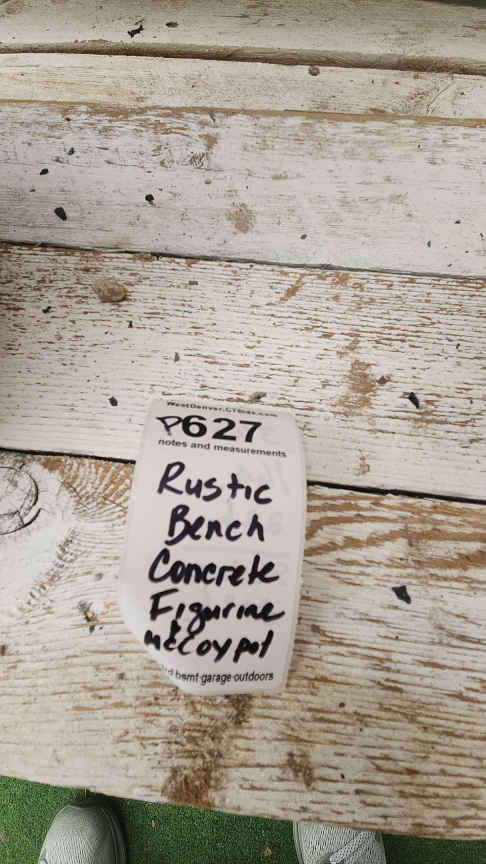 WestDenver.CTBids.com
P627
notes and measurements
Rustic
Bench
Concrete
Figurine
McCoy pot
bsmt·garage·outdoors